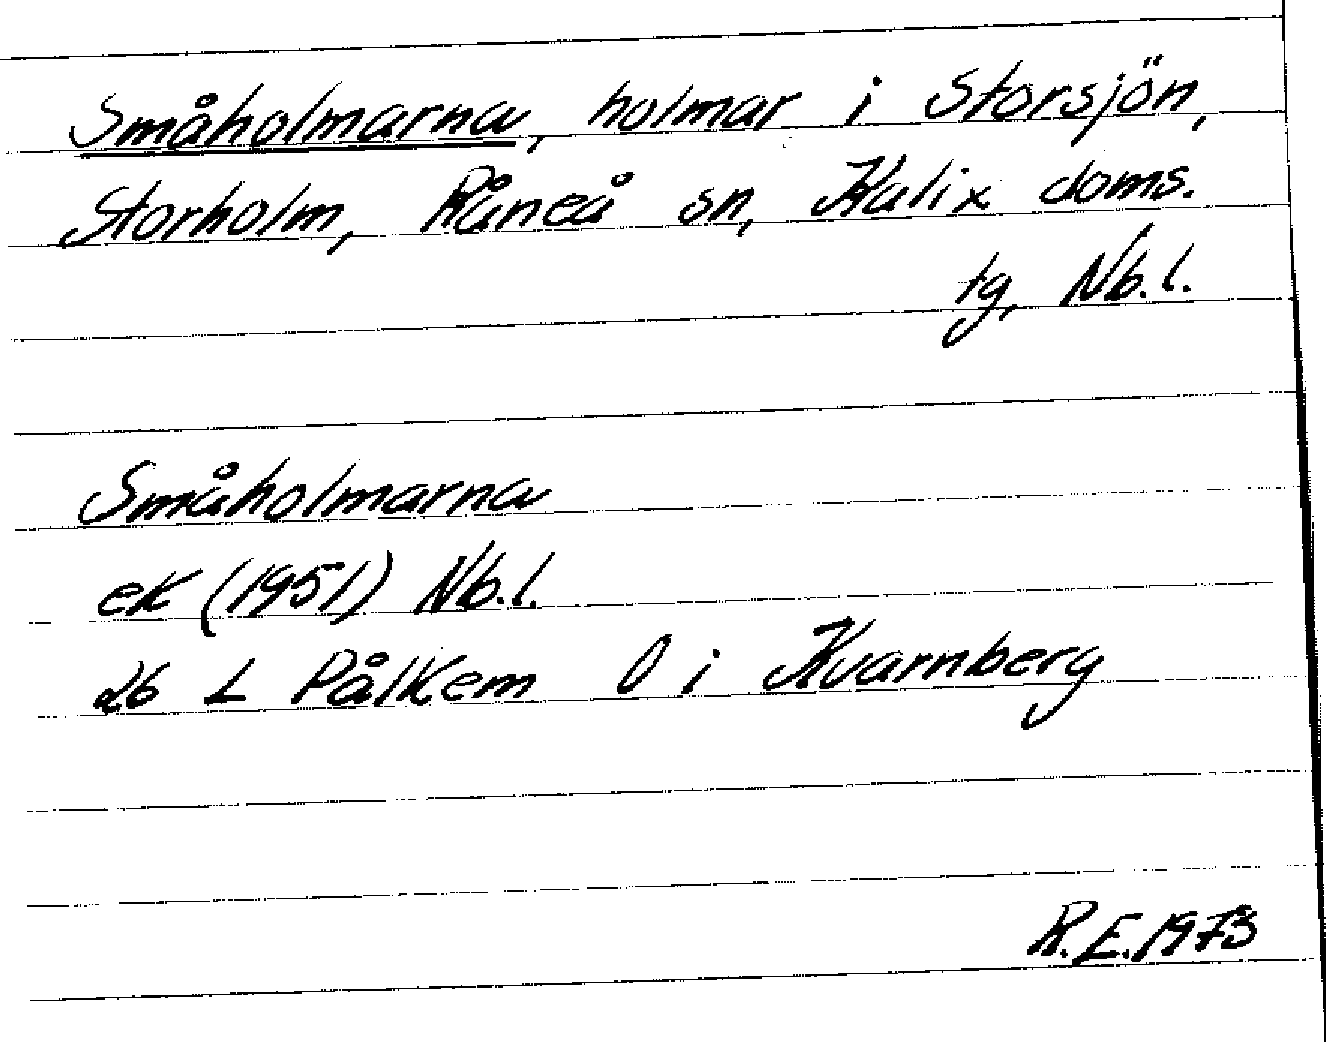 Småholmarna, holmar i Storsjön,
Storholm, Råneå sn, Kalix doms.
tg, Nb.l.
Småholmarna
ek (1951) Nb.l.
26 L Pålkem O i Kvarnberg
R.E.1973